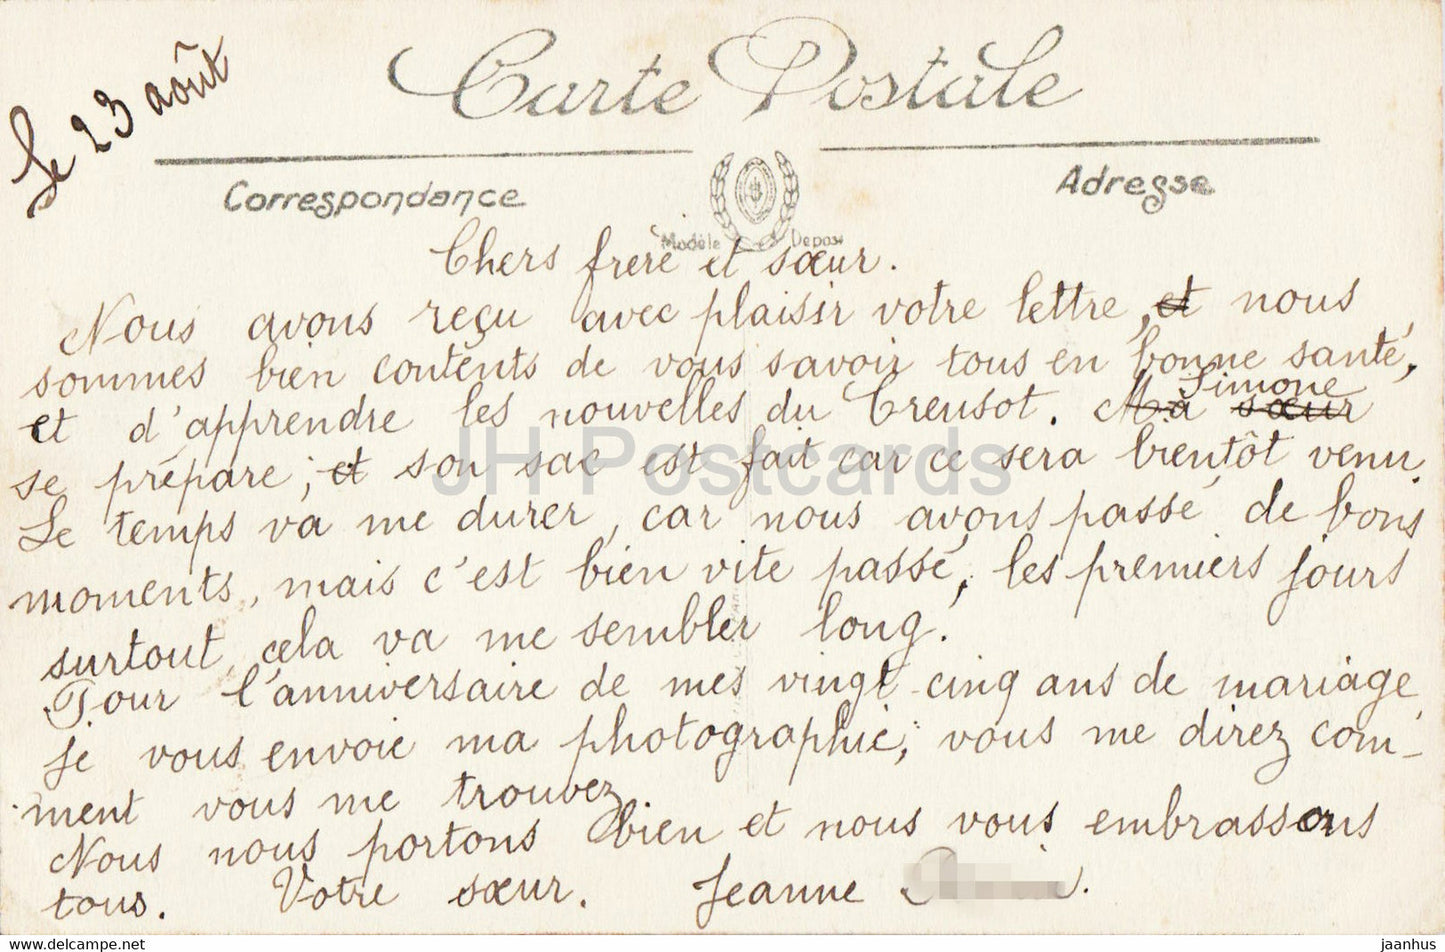 Le 23 août
Carte Postale
Correspondance
Adresse
Modèle Déposé
Chers frère et sœur.
Nous avons reçu avec plaisir votre lettre, et nous
sommes bien contents de vous savoir tous en bonne santé,
et d'apprendre les nouvelles du Creusot. Ma sœur Simone
se prépare; et son sac est fait car ce sera bientôt venu.
Le temps va me durer, car nous avons passé de bons
moments, mais c'est bien vite passé, les premiers jours
surtout, cela va me sembler long.
Pour l'anniversaire de mes vingt-cinq ans de mariage,
je vous envoie ma photographie, vous me direz com-
ment vous me trouvez
Nous nous portons bien et nous vous embrassons
tous. Votre sœur. Jeanne
JH Postcards
www.delcampe.net
jaanhus